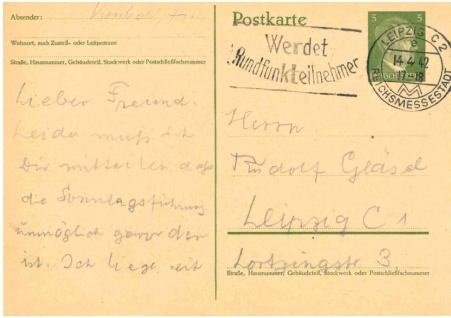 Absender:
Wohnort, auch Zustell- oder Leitpostamt
Straße, Hausnummer, Gebäudeteil, Stockwerk oder Postschließfachnummer
Lieber Freund.
Leider muß ich
Dir mitteilen daß
die Sonntagsführung
unmöglich geworden
ist. Ich liege seit
Postkarte
Werdet
Rundfunkteilnehmer
LEIPZIG C2
14.4.42
REICHSMESSESTADT
5 5
Herrn
Rudolf Gläsel
Leipzig C 1
Lortzingstr 3.
Straße, Hausnummer, Gebäudeteil, Stockwerk oder Postschließfachnummer